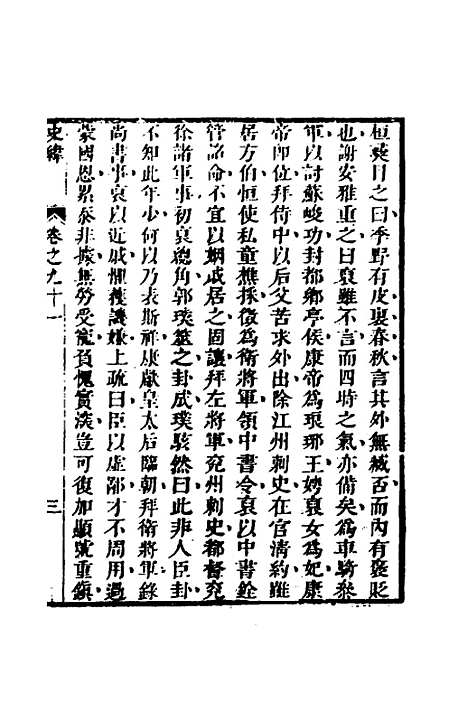 桓彝目之曰季野有皮裏春秋言其外無臧否而內有褒貶
也謝安雅重之曰裒雖不言而四時之氣亦備矣為車騎參
軍以討蘇峻功封都鄉亭侯康帝為琅琊王娉裒女為妃康
帝即位拜侍中以后父苦求外出除江州刺史在官清約雖
居方伯恒使私童樵採徵為衛將軍領中書令裒以中書銓
管詔命不宜以姻戚居之固讓拜左將軍兗州刺史都督兗
徐諸軍事初裒總角郭璞筮之卦成璞駭然曰此非人臣卦
不知此年少何以乃表斯祥康獻皇太后臨朝拜衛將軍錄
尚書事裒以近戚懼獲譏嫌上疏曰臣以虛鄙才不周用過
蒙國恩累忝非據無勞受寵負愧實深豈可復加顯號重鎮
史緯
卷之九十一
三